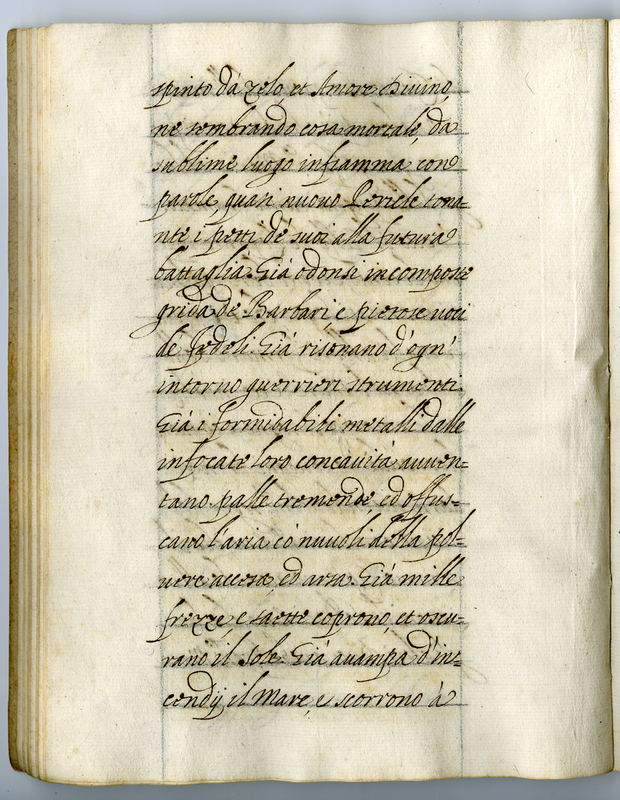 spinto dà zelo, et Amore Divino,
ne sembrando cosa mortale, da
sublime luogo infiamma con
parole, quasi nuovo Pericle tona-
nte i petti de' suoi alla futura
battaglia. Già odonsi incomposte
grida de' Barbari, e pietose voci
de' Fedeli. Già risonano d'ogn'
intorno guerrieri strumenti.
Già i formidabili metalli dalle
infocate loro concavità avven=
tano palle tremende, ed offus=
cano l'aria cò nuvoli della pol=
vere accesa, ed arsa. Già mille
frezze e saette coprono, et oscu=
rano il Sole. Già avampa d'in=
cendij il Mare, e scorrono à